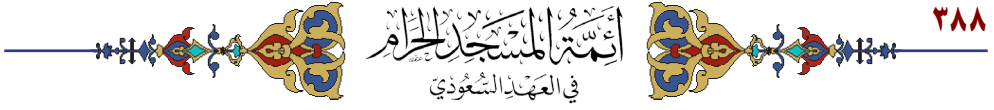 ٣٨٨
أَئِمَّةُ المَسْجِدِ الحَرَامِ
فِي العَهْدِ السُّعُودِيّ